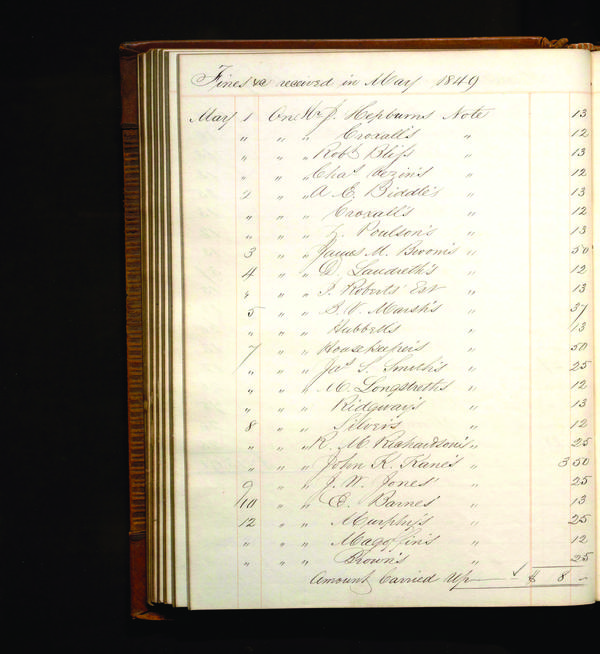 Fines &c received in May 1849
May 1 One Hy J. Hepburns Note 13
" " " Croxall's " 12
" " " Robt Bliss " 13
" " " Chas Vezin's " 12
2 " " A. E. Biddle's " 12
" " " Croxall's " 12
" " " Poulson's " 13
3 " " James M. " 50
4 " " D. Landreth's " 12
" " " Roberts' Est " 13
5 " " B. W. Marsh's " 37
" " " Hubbells " 13
7 " " Housekeeper's " 50
" " " Jas S. Smith's " 25
" " " M. Longstreth's " 12
" " " Ridgway's " 13
8 " " Silver's " 12
" " " R. M. Richardson's " 25
" " " John K. Kane's " 3 50
9 " " J. W. Jones' " 25
10 " " E. Barnes' " 13
12 " " Murphy's " 25
" " " Magoffin's " 12
" " " Brown's " 25
Amount Carried Up $ 8 -